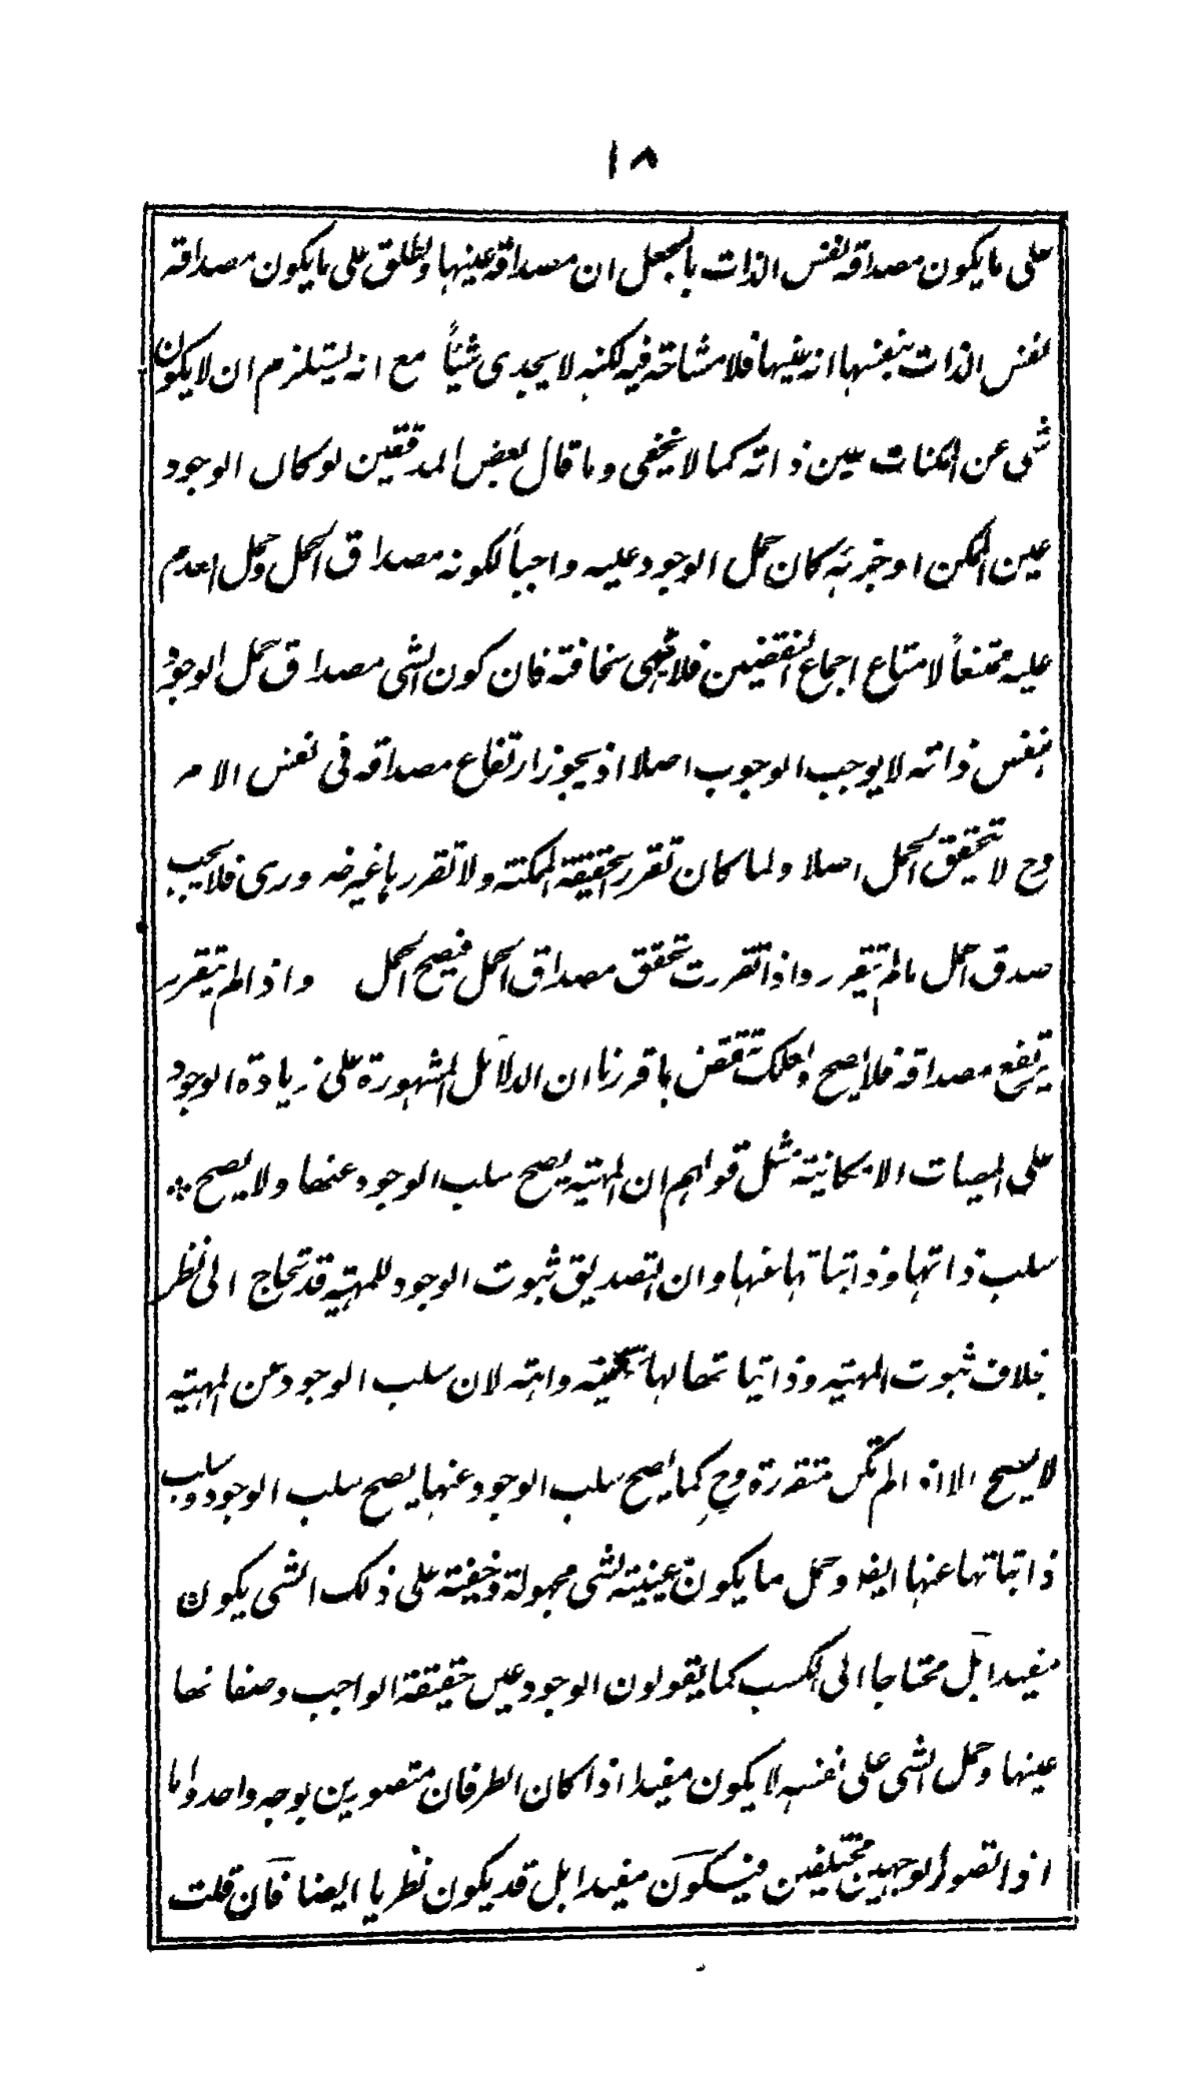 ١٨
على ما يكون مصداقه نفس الذات بالجعل ان مصداقه عينها ويطلق على ما يكون مصداقه
نفس الذات بنفسها انه عينها فلا مشاحة فيه لكنه لا يجدى شيئاً مع انه يستلزم ان لا يكون
شى من الممكنات عين ذاته كما لا يخفى وما قال بعض المدققين لو كان الوجود
عين الممكن او جزئه كان حمل الوجود عليه واجباً لكونه مصداق الحمل وحمل العدم
عليه ممتنعاً لامتناع اجماع النقضين فلا يخفى سخافته فان كون الشى مصداق حمل الوجود
بنفس ذاته لا يوجب الوجوب اصلا اذ يجوز ارتفاع مصداقه فى نفس الامر
وح لا يتحقق الحمل اصلا ولما كان تقرر الحقيقة الممكنة ولا تقررها غير ضرورى فلا يجب
صدق الحمل مالم يتقرر واذا تقررت تحقق مصداق الحمل فيصح الحمل واذا لم يتقرر
يرتفع مصداقه فلا يصح ولعلك تتفض بما قررنا ان الدلائل المشهورة على زيادة الوجود
على المهيات الامكانية مثل قولهم ان المهية يصح سلب الوجود عنها ولا يصح *
سلب ذاتها وذاتياتها عنها وان التصديق بثبوت الوجود للمهية قد تحتاج الى نظر
بخلاف ثبوت المهية وذاتياتها لها سخيفة واهته لان سلب الوجود عن المهية
لا يصح الا اذا لم تكن متقررة وح كما يصح سلب الوجود عنها يصح سلب الوجود وسلب
ذاتياتها عنها ايضا وحمل ما يكون عينيته لشى مجهولة وخفية على ذلك الشى يكون
مفيدا بل محتاجا الى الكسب كما يقولون الوجود عين حقيقة الواجب وصفاتها
عينها وحمل الشى على نفسه لا يكون مفيدا اذا كان الطرفان متصورين بوجه واحد واما
اذا تصورا بوجهين مختلفين فيكون مفيدا بل قد يكون نظريا ايضا فان قلت